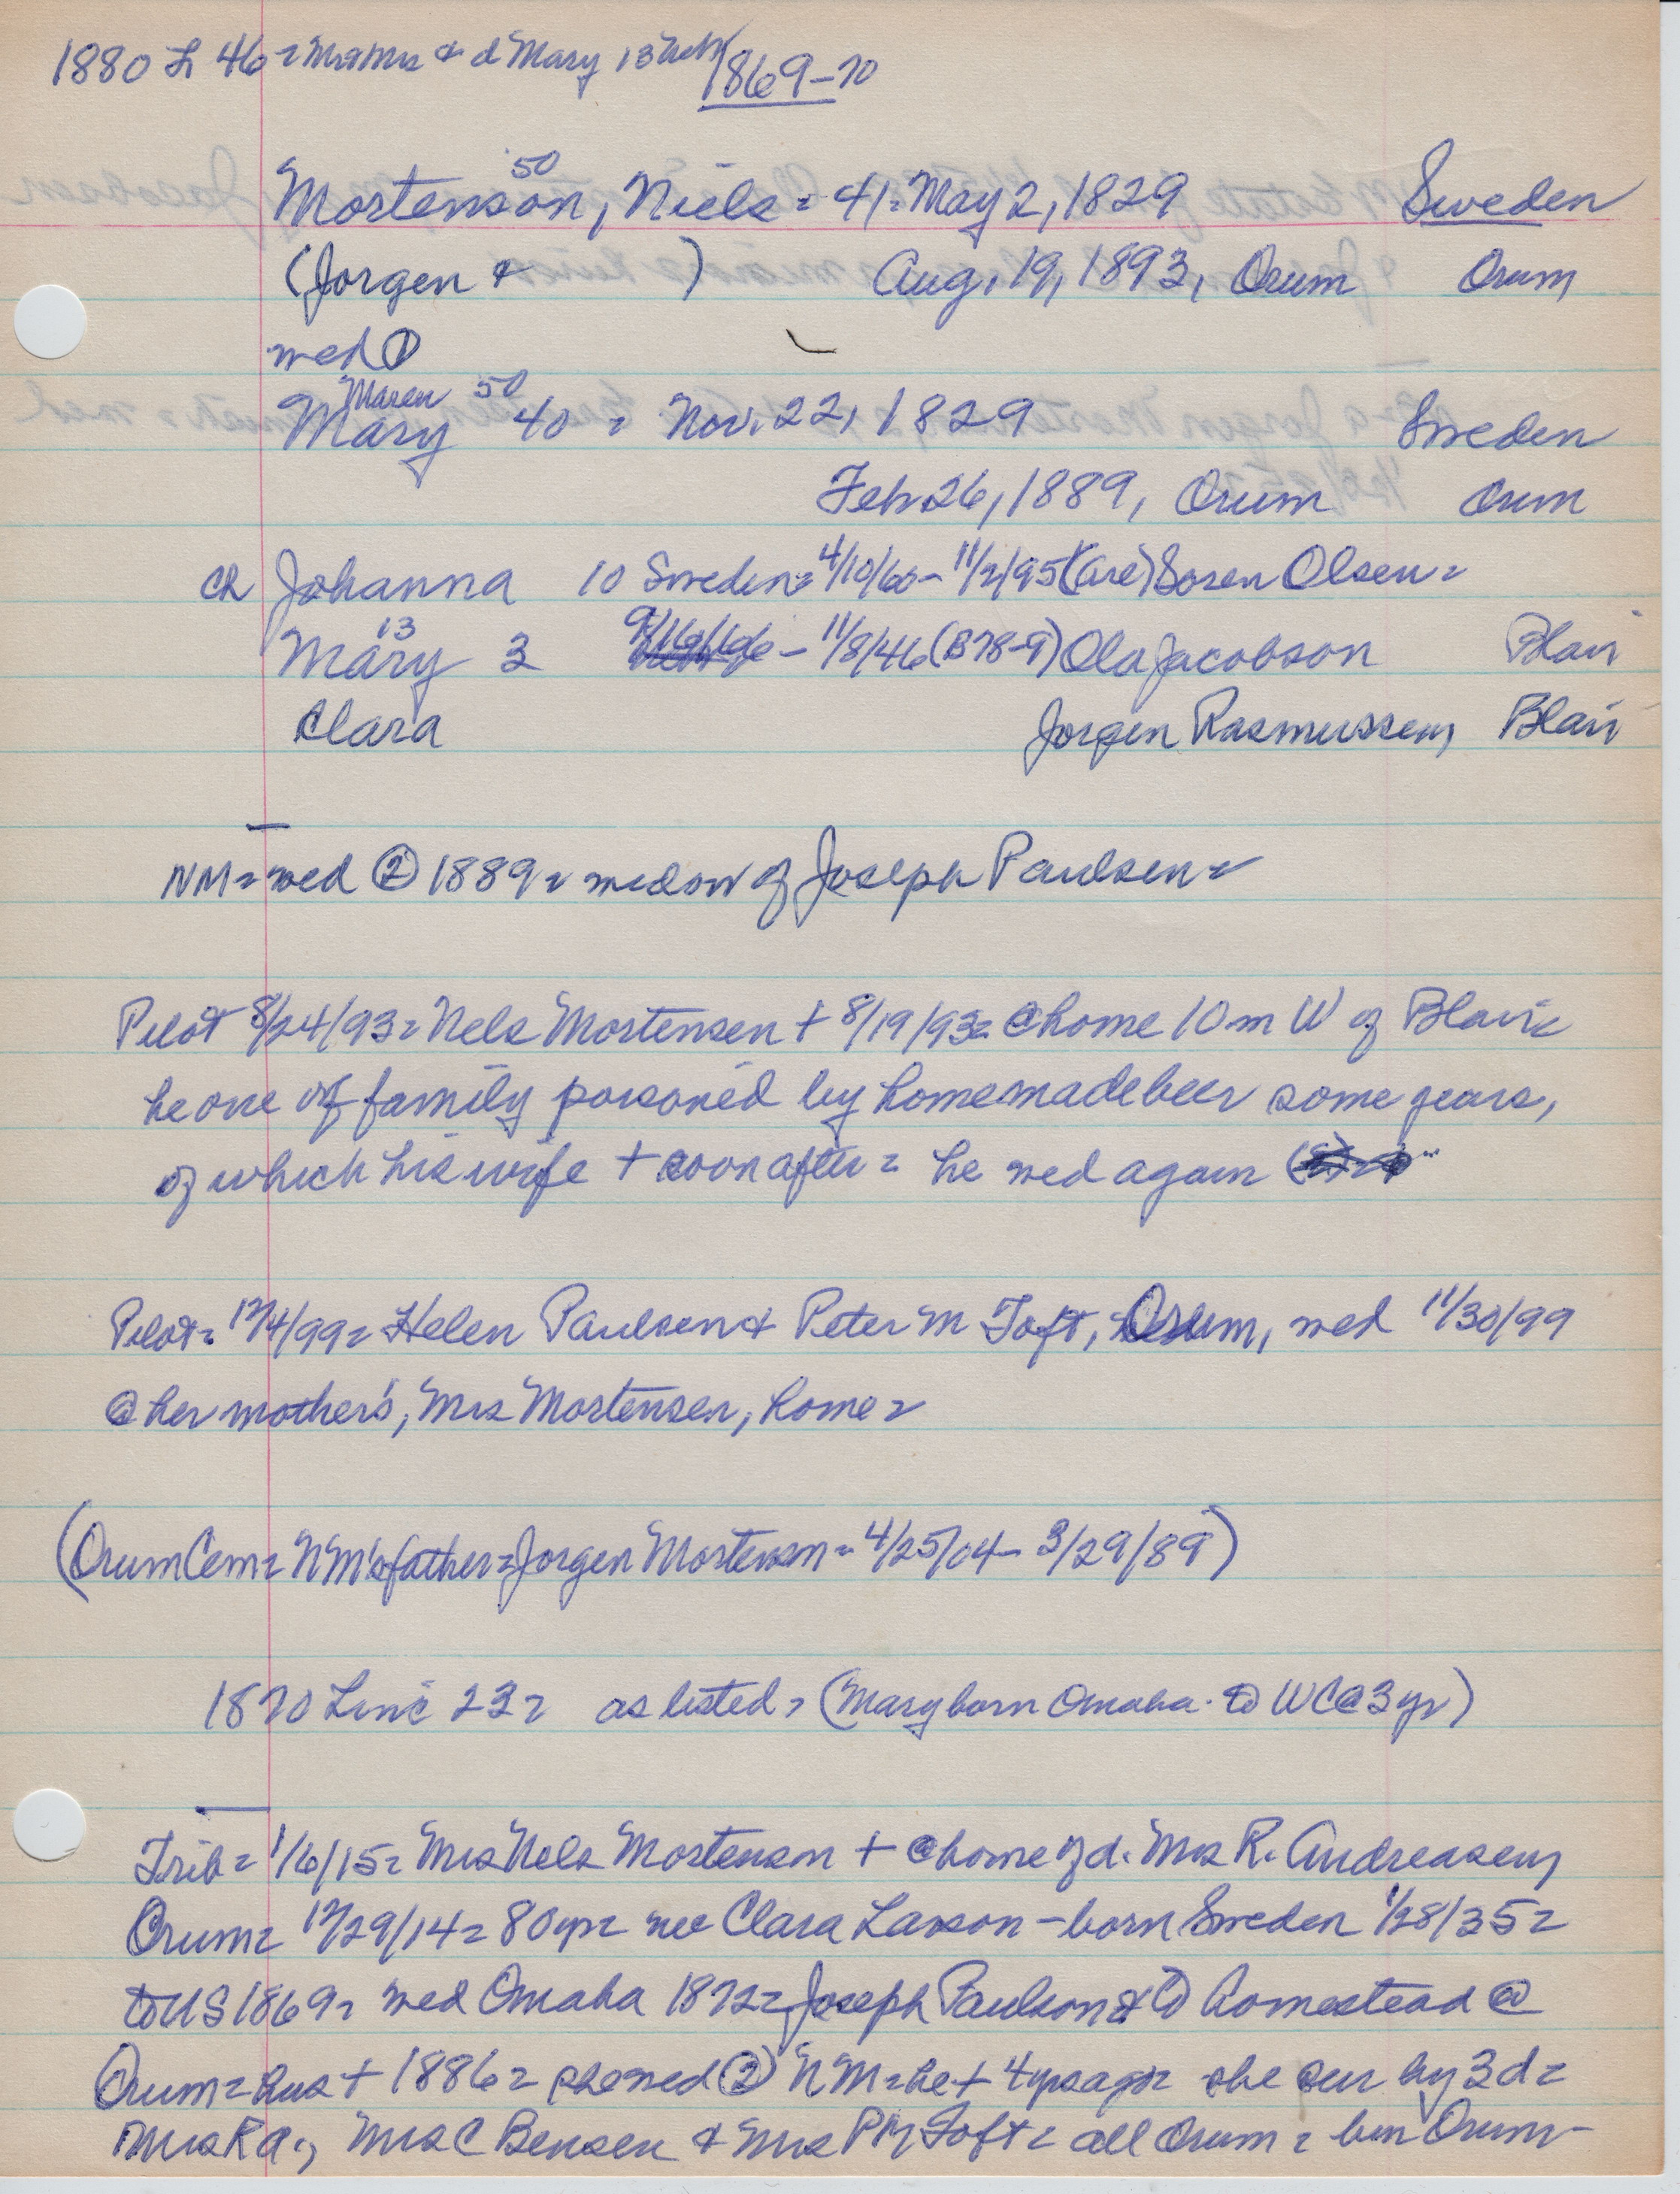 1880 L 46 = Mr & Mrs & d Mary 13 Neb
1869-70
50
Mortenson, Niels = 41 = May 2, 1829 Sweden
(Jorgen & ) Aug. 19, 1893, Orum Orum
wed ①
Maren 50
Mary 40 = Nov. 22, 1829 Sweden
Feb 26, 1889, Orum Orum
ch Johanna 10 Sweden = 4/10/60 - 11/2/95 (are) Soren Olsen =
13
Mary 3 9/16/66 - 11/8/46 (B78-9) Ola Jacobson Blair
Clara Jorgen Rasmussen, Blair
NM = wed ② 1889 = widow of Joseph Paulsen =
Pilot 8/24/93 = Nels Mortensen + 8/19/93 = @ home 10 m W of Blair =
he one of family poisoned by homemade beer some years,
of which his wife + soon after = he wed again
Pilot = 12/4/99 = Helen Paulsen & Peter M Toft, Orum, wed 11/30/99
@ her mother's, Mrs Mortensen, home =
(Orum Cem = NM's father = Jorgen Mortensen = 4/25/04 - 3/29/89)
1870 Line 23 = as listed = (Mary born Omaha - to WC @ 3 yr)
Trib = 1/6/15 = Mrs Nels Mortensen + @ home of d. Mrs R. Andreasen,
Orum = 12/29/14 = 80 yr = nee Clara Larson - born Sweden 1/28/35 =
to US 1869 = wed Omaha 1872 = Joseph Paulson & to homestead @
Orum = hus + 1886 = she wed ② NM = he + 4 yrs ago = she sur by 3 d =
Mrs RA., Mrs C Bensen & Mrs PM Toft = all Orum = bur Orum -